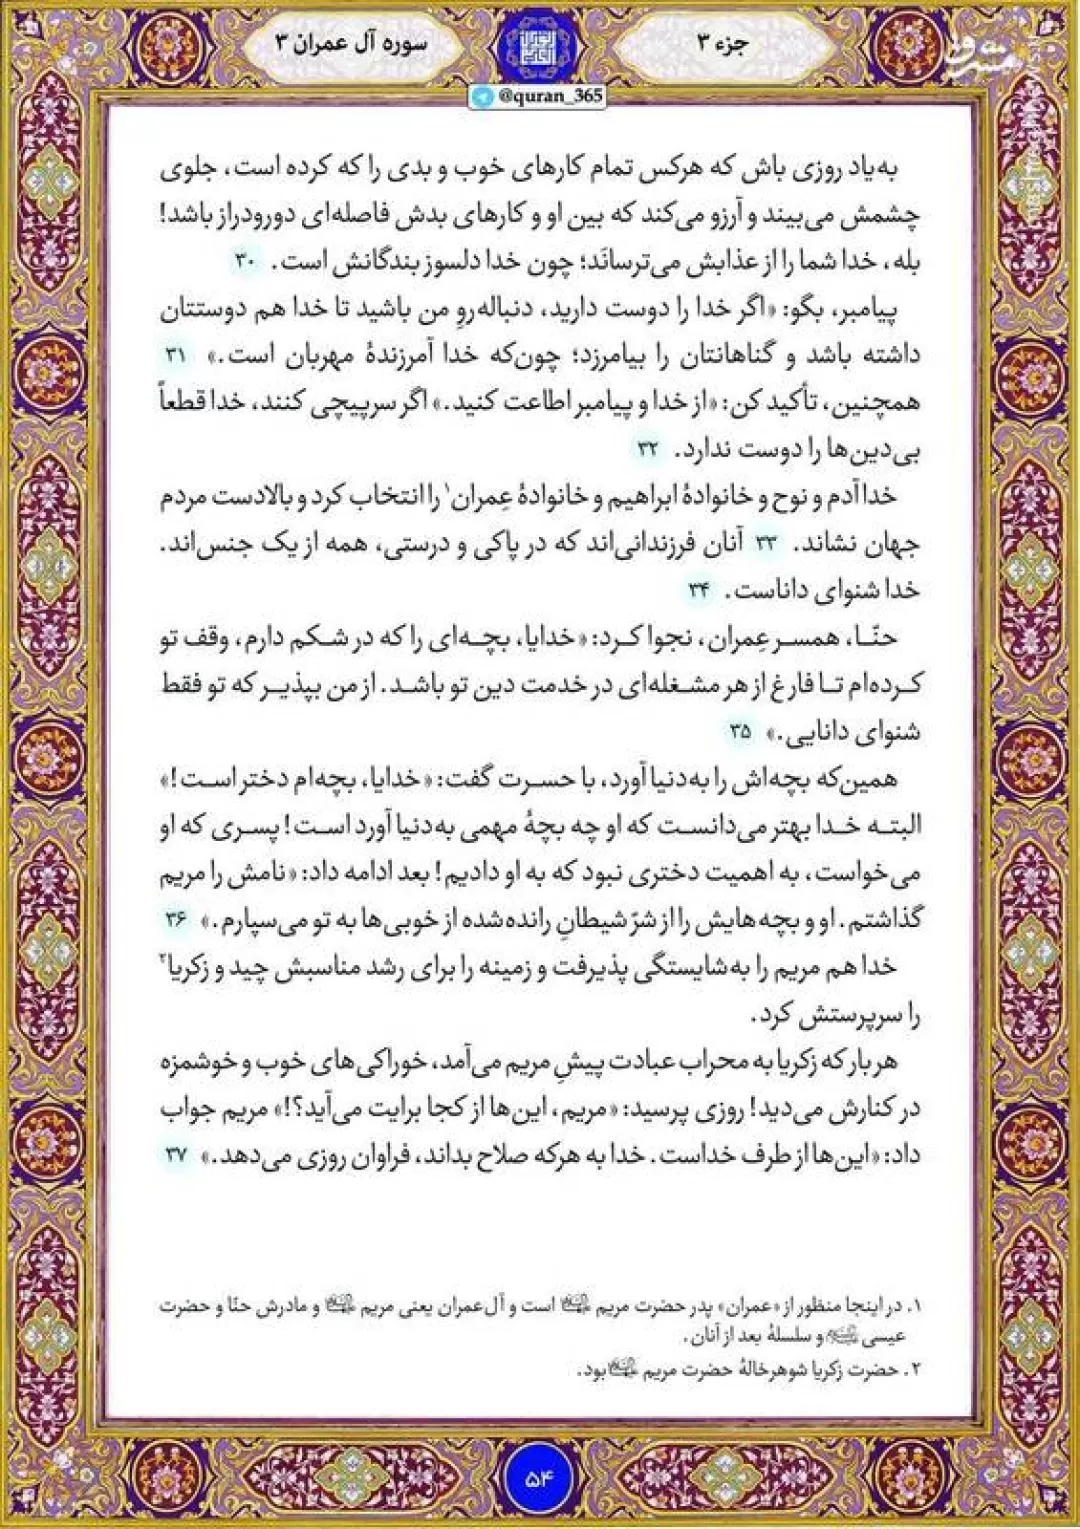 جزء ۳
سوره آل عمران ۳
@quran_365
به‌یاد روزی باش که هرکس تمام کارهای خوب و بدی را که کرده است، جلوی
چشمش می‌بیند و آرزو می‌کند که بین او و کارهای بدش فاصله‌ای دورودراز باشد!
بله، خدا شما را از عذابش می‌ترسانَد؛ چون خدا دلسوز بندگانش است. ۳۰
پیامبر، بگو: «اگر خدا را دوست دارید، دنباله‌روِ من باشید تا خدا هم دوستتان
داشته باشد و گناهانتان را بیامرزد؛ چون‌که خدا آمرزندهٔ مهربان است.» ۳۱
همچنین، تأکید کن: «از خدا و پیامبر اطاعت کنید.» اگر سرپیچی کنند، خدا قطعاً
بی‌دین‌ها را دوست ندارد. ۳۲
خدا آدم و نوح و خانوادهٔ ابراهیم و خانوادهٔ عِمران۱ را انتخاب کرد و بالادست مردم
جهان نشاند. ۳۳ آنان فرزندانی‌اند که در پاکی و درستی، همه از یک جنس‌اند.
خدا شنوای داناست. ۳۴
حنّا، همسر عِمران، نجوا کرد: «خدایا، بچه‌ای را که در شکم دارم، وقف تو
کرده‌ام تا فارغ از هر مشغله‌ای در خدمت دین تو باشد. از من بپذیر که تو فقط
شنوای دانایی.» ۳۵
همین‌که بچه‌اش را به‌دنیا آورد، با حسرت گفت: «خدایا، بچه‌ام دختر است!»
البته خدا بهتر می‌دانست که او چه بچهٔ مهمی به‌دنیا آورد است! پسری که او
می‌خواست، به اهمیت دختری نبود که به او دادیم! بعد ادامه داد: «نامش را مریم
گذاشتم. او و بچه‌هایش را از شرّ شیطانِ رانده‌شده از خوبی‌ها به تو می‌سپارم.» ۳۶
خدا هم مریم را به‌شایستگی پذیرفت و زمینه را برای رشد مناسبش چید و زکریا۲
را سرپرستش کرد.
هر بار که زکریا به محراب عبادت پیشِ مریم می‌آمد، خوراکی‌های خوب و خوشمزه
در کنارش می‌دید! روزی پرسید: «مریم، این‌ها از کجا برایت می‌آید؟!» مریم جواب
داد: «این‌ها از طرف خداست. خدا به هرکه صلاح بداند، فراوان روزی می‌دهد.» ۳۷
۱. در اینجا منظور از «عمران» پدر حضرت مریم است و آل‌عمران یعنی مریم و مادرش حنّا و حضرت
عیسی و سلسلهٔ بعد از آنان.
۲. حضرت زکریا شوهرخالهٔ حضرت مریم بود.
۵۴